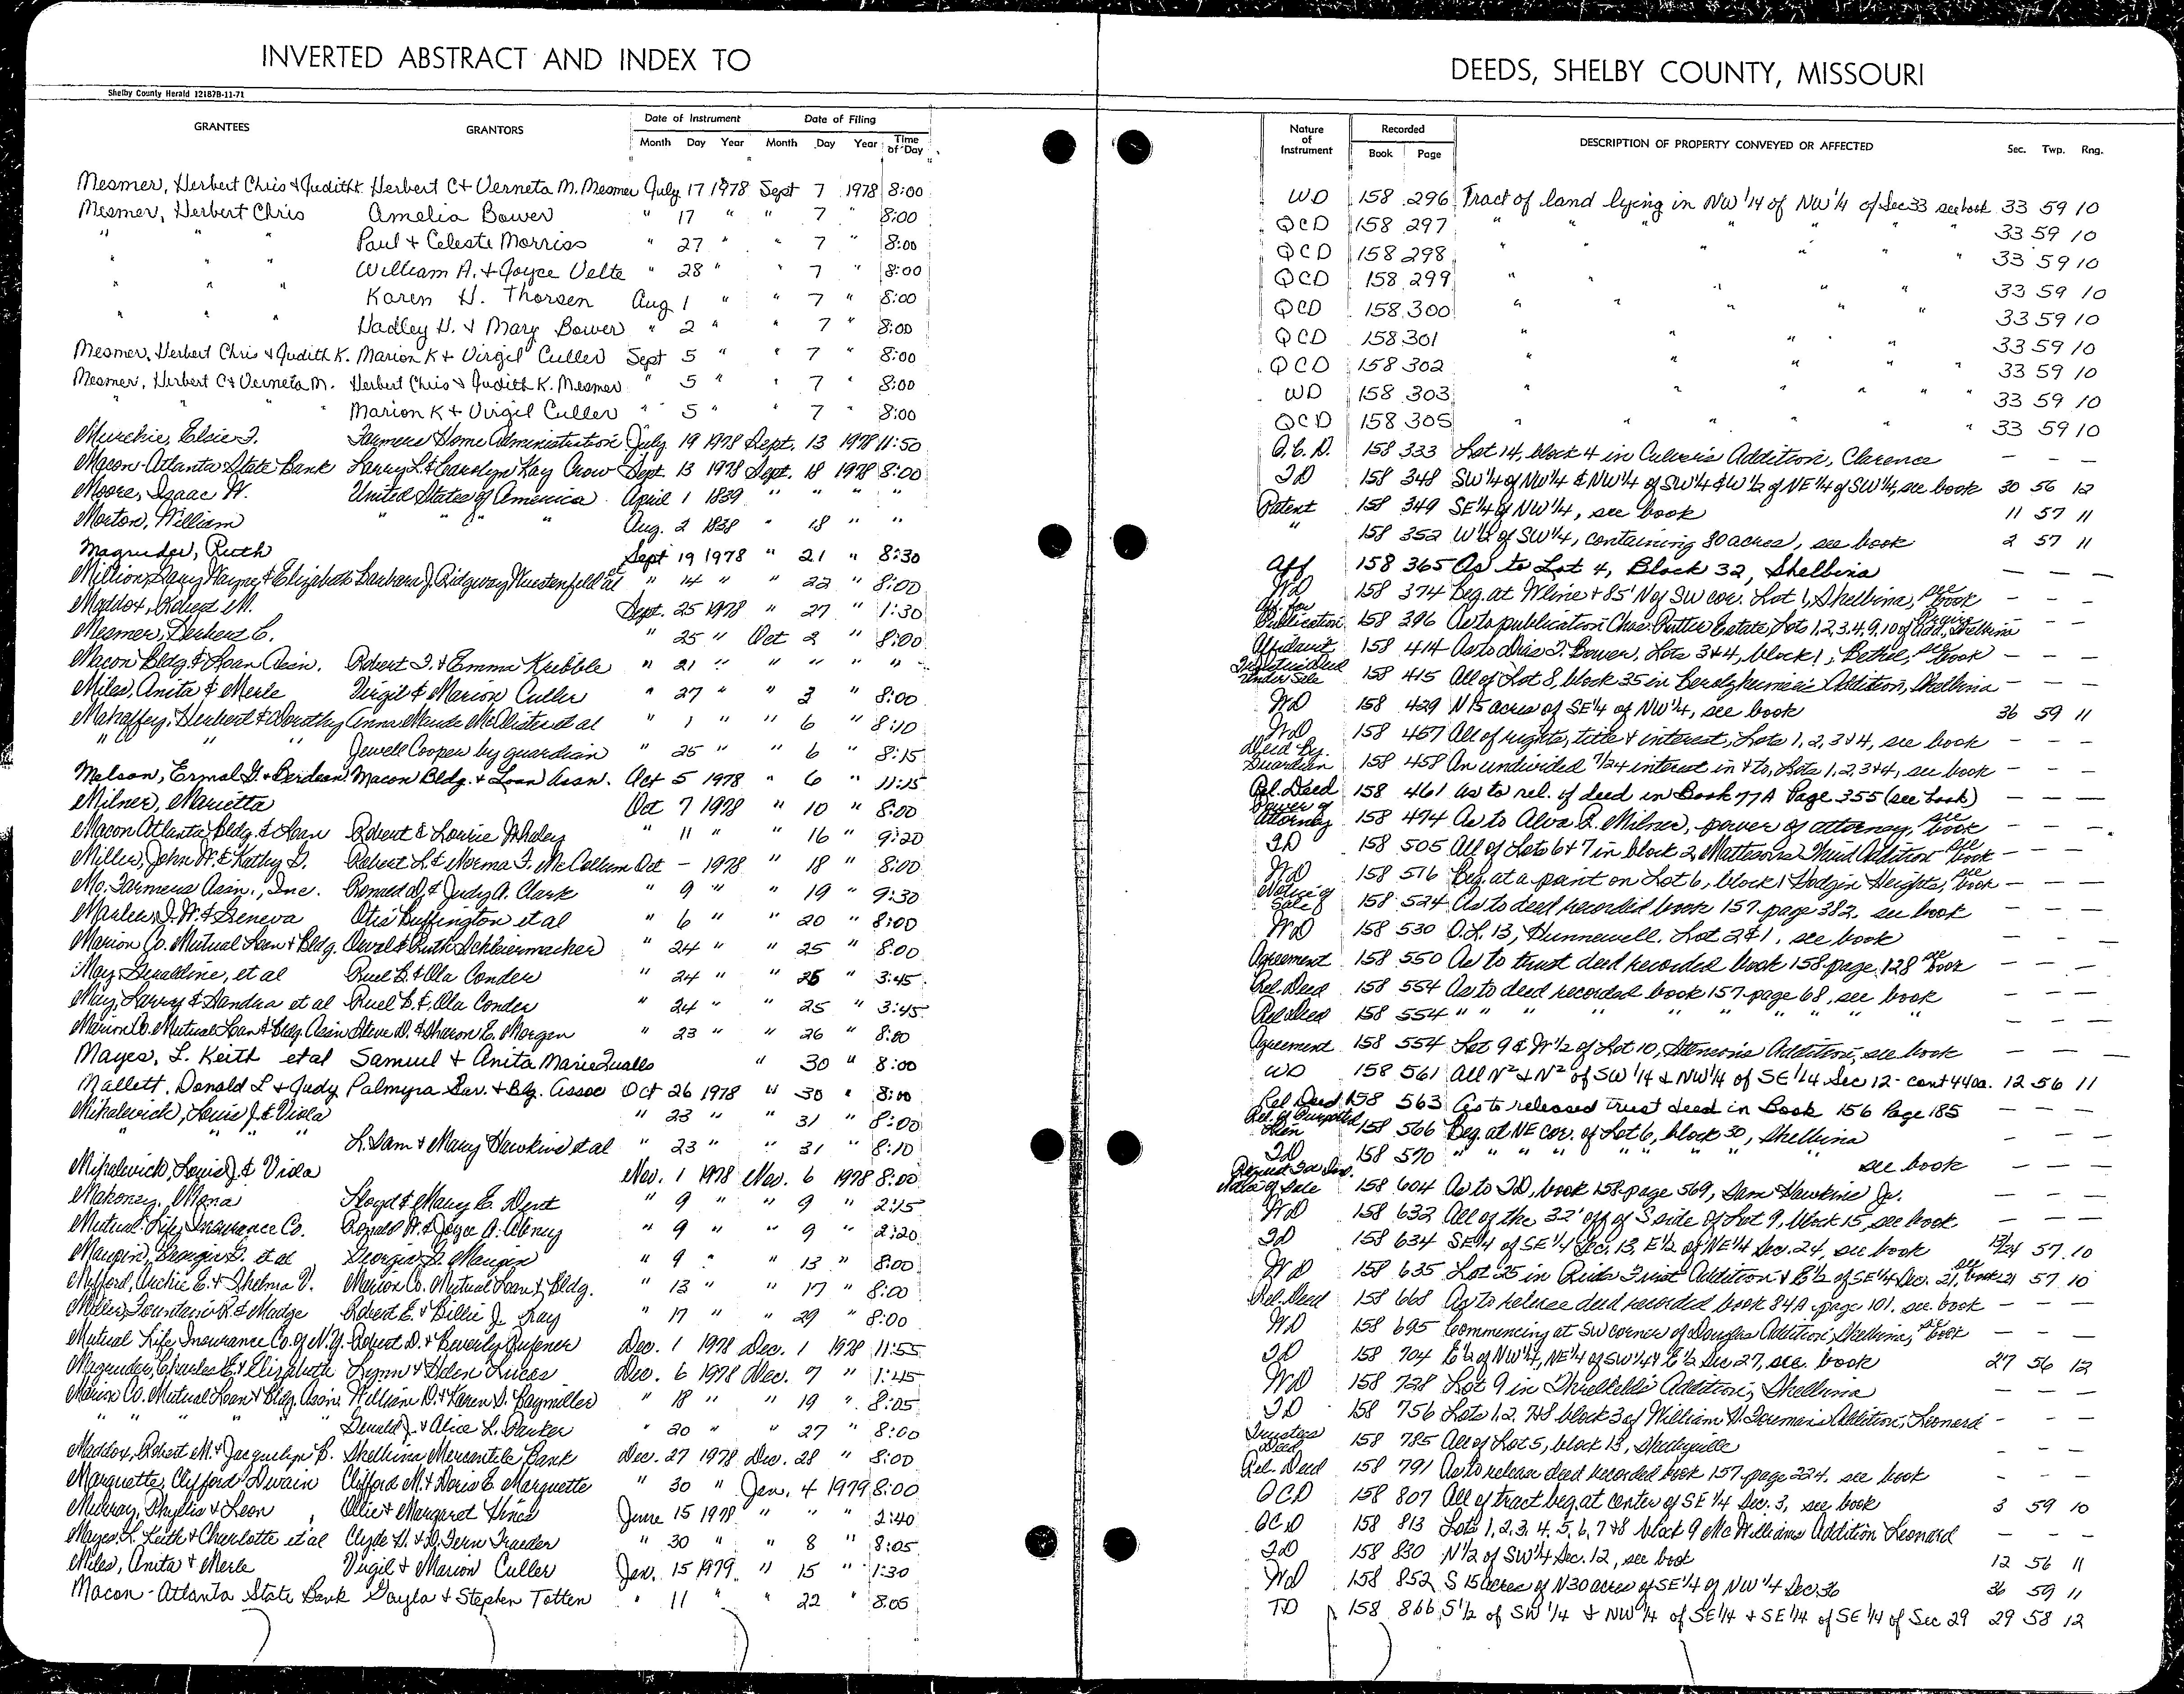 INVERTED ABSTRACT AND INDEX TO
Shelby County Herald 12187B-11-71
GRANTEES GRANTORS Date of Instrument Date of Filing
Month Day Year Month Day Year Time of Day
Mesmer, Herbert Chris & Judith K Herbert C + Verneta M. Mesmer July 17 1978 Sept 7 1978 8:00
Mesmer, Herbert Chris Amelia Bower " 17 " " 7 " 8:00
" " " Paul + Celeste Morriss " 27 " " 7 " 8:00
" " " William A. + Joyce Velte " 28 " " 7 " 8:00
" " " Karen H. Thorsen Aug 1 " " 7 " 8:00
" " " Hadley H. & Mary Bower " 2 " " 7 " 8:00
Mesmer, Herbert Chris & Judith K. Marion K + Virgil Culler Sept 5 " " 7 " 8:00
Mesmer, Herbert C + Verneta M. Herbert Chris & Judith K. Mesmer " 5 " " 7 " 8:00
" " " Marion K + Virgil Culler " 5 " " 7 " 8:00
Murchie, Elsie F. Farmers Home Administration July 19 1978 Sept. 13 1978 11:50
Macon-Atlanta State Bank Larry L. & Carolyn Kay Crow Sept. 13 1978 Sept. 18 1978 8:00
Moore, Isaac W. United States of America April 1 1839 " " " "
Morton, William " " " Aug. 2 1838 " 18 " "
Magruder, Ruth Sept 19 1978 " 21 " 8:30
Million, Gary Wayne & Elizabeth Barbara J. Ridgway et al " 14 " " 22 " 8:00
Maddox, Robert M. Sept. 25 1978 " 27 " 1:30
Mesmer, Herbert C. " 25 " Oct 2 " 8:00
Macon Bldg. & Loan Assn. Robert I. & Emma Kribble " 21 " " " " "
Miles, Anita & Merle Virgil & Marion Culler " 27 " " 3 " 8:00
Mahaffey, Herbert & Dorothy Anna Maude McAlister et al " 1 " " 6 " 8:10
" " " Jewell Cooper by guardian " 25 " " 6 " 8:15
Melson, Ermal G. + Berdean Macon Bldg. + Loan Assn. Oct 5 1978 " 6 " 11:15
Milner, Marietta Oct 7 1978 " 10 " 8:00
Macon Atlanta Bldg. & Loan Robert & Lorrie Whaley " 11 " " 16 " 9:20
Miller, John W. & Kathy D. Robert L. & Norma F. McCollum Oct - 1978 " 18 " 8:00
Mo. Farmers Assn., Inc. Ronald D. & Judy A. Clark " 9 " " 19 " 9:30
J. W. & Geneva Otis Buffington et al " 6 " " 20 " 8:00
Marion Co. Mutual Loan + Bldg. Orval & Ruth Schleiermacher " 24 " " 25 " 8:00
May, Geraldine, et al Ruel B. & Ola Conder " 24 " " 25 " 3:45
May, Larry & Sandra et al Ruel B. & Ola Conder " 24 " " 25 " 3:45
Marion Co. Mutual Loan & Bldg Assn Steve D. & Sharon E. Morgan " 23 " " 26 " 8:00
Mayes, L. Keith et al Samuel & Anita Marie Qualls " 30 " 8:00
Mallett, Donald L + Judy Palmyra Sav. + Blg. Assoc Oct 26 1978 " 30 " 8:00
Mihalevich, Louis J. & Viola " 23 " " 31 " 8:00
" " " L. Sam & Mary Hawkins et al " 23 " " 31 " 8:10
Mihalevich, Louis J. & Viola Nov. 1 1978 Nov. 6 1978 8:00
Mahoney, Mona Lloyd & Mary E. Dent " 9 " " 9 " 2:15
Mutual Life Insurance Co. Ronald W. & Joyce A. " 9 " " 9 " 2:20
Maupin, Georgia D. et al Georgia D. Maupin " 9 " " 13 " 8:00
Mifford, Archie E. & Thelma V. Marion Co. Mutual Loan & Bldg. " 13 " " 17 " 8:00
Miller, Fountain R. & Madge Robert E. & Billie J. Gray " 17 " " 29 " 8:00
Mutual Life Insurance Co. of N.Y. Robert D. & Beverly Dec. 1 1978 Dec. 1 1978 11:55
Magruder, Charles E. & Elizabeth Lynn & Helen Lucas Dec. 6 1978 Dec. 7 " 1:45
Marion Co. Mutual Loan & Bldg. Assn. William D. & Karen S. Baymiller " 18 " " 19 " 8:05
" " " " Gerald J. & Alice L. Parker " 20 " " 27 " 8:00
Maddox, Robert M. & Jacquelyn B. Shelbina Mercantile Bank Dec. 27 1978 Dec. 28 " 8:00
Marquette, Clifford Dwain Clifford M. & Doris E. Marquette " 30 " Jan. 4 1979 8:00
Murray, Phyllis & Leon Ollie & Margaret Hines June 15 1978 " " " 2:40
Mayes, L. Keith & Charlotte et al Clyde H. & D. Fern Traeder " 30 " " 8 " 8:05
Miles, Anita & Merle Virgil & Marion Culler Jan. 15 1979 " 15 " 1:30
Macon-Atlanta State Bank Gayla & Stephen Totten " 11 " " 22 " 8:05
DEEDS, SHELBY COUNTY, MISSOURI
Nature of Instrument Recorded Book Page DESCRIPTION OF PROPERTY CONVEYED OR AFFECTED Sec. Twp. Rng.
WD 158 296 Tract of land lying in NW 1/4 of NW 1/4 of Sec 33 see book 33 59 10
QCD 158 297 " " " " " 33 59 10
QCD 158 298 " " " " 33 59 10
QCD 158 299 " " " " 33 59 10
QCD 158 300 " " " " 33 59 10
QCD 158 301 " " " 33 59 10
QCD 158 302 " " " " 33 59 10
WD 158 303 " " " " " 33 59 10
QCD 158 305 " " " " " 33 59 10
Q.C.D. 158 333 Lot 14, block 4 in Culver's Addition, Clarence — — —
TD 158 348 SW 1/4 of NW 1/4 & NW 1/4 of SW 1/4 & W 1/2 of NE 1/4 of SW 1/4, see book 30 56 12
Patent 158 349 SE 1/4 of NW 1/4, see book 11 57 11
" 158 352 W 1/2 of SW 1/4, containing 80 acres, see book 2 57 11
Aff 158 365 As to Lot 4, Block 32, Shelbina — — —
WD 158 374 Beg. at W line & 85' N of SW cor. Lot 1, Shelbina, see book — — —
Aff. for Publication 158 396 As to publication Chas. Rutter Estate, Lots 1,2,3,4,9,10 of Add., Shelbina — —
Affidavit 158 414 As to Oris T. Bower, Lots 3 & 4, block 1, Bethel, see book — — —
Trustees Deed Under Sale 158 415 All of Lot 8, block 35 in Berolzheimer's Addition, Shelbina — — —
WD 158 429 N 15 acres of SE 1/4 of NW 1/4, see book 36 59 11
WD 158 457 All of rights, title & interest, Lots 1, 2, 3 & 4, see book — — —
Deed by Guardian 158 458 An undivided 7/24 interest in & to, Lots 1, 2, 3 & 4, see book — — —
Rel. Deed 158 461 As to rel. of deed in Book 77A Page 355 (see book) — — —
Power of Attorney 158 474 As to Alva R. Milner, power of attorney, see book — — —
TD 158 505 All of Lots 6 & 7 in block 2, Matteson's Third Addition see book — — —
WD 158 516 Beg. at a point on Lot 6, block 1 Hodgin Heights, see book — — —
Notice of Sale 158 524 As to deed recorded book 157 page 382. see book — — —
WD 158 530 O.L. 13, Hunnewell. Lot 2 & 1, see book — — —
Agreement 158 550 As to trust deed recorded book 158 page 128 see book — — —
Rel. Deed 158 554 As to deed recorded book 157 page 68, see book — — —
Rel. Deed 158 554 " " " " " " " " — — —
Agreement 158 554 Lot 9 & W 1/2 of Lot 10, Addition, see book — — —
WD 158 561 All N² & N² of SW 1/4 & NW 1/4 of SE 1/4 Sec 12 - cont 44 aa. 12 56 11
Rel Deed 158 563 As to released trust deed in Book 156 Page 185
Rel. of Purported Lien 158 566 Beg. at NE cor. of Lot 6, block 30, Shelbina — — —
TD 158 570 " " " " " " " " see book — — —
Request for Notice of Sale 158 604 As to TD, book 158 page 569, Sam Hawkins Jr. — — —
WD 158 632 All of the 32' off of S side of Lot 9, block 15, see book — — —
TD 158 634 SE 1/4 of SE 1/4 Sec. 13, E 1/2 of NE 1/4 Sec. 24, see book 13/24 57 10
WD 158 635 Lot 25 in Addition & E 1/2 of SE 1/4 Sec. 21, see book 21 57 10
Rel. Deed 158 668 As to release deed recorded book 84A page 101. see book — — —
WD 158 695 Commencing at SW corner of Douglas Addition, Shelbina, see book — — —
TD 158 704 E 1/2 of NW 1/4, NE 1/4 of SW 1/4 & E 1/2 Sec 27, see book 27 56 12
WD 158 728 Lot 9 in Threlkeld's Addition, Shelbina — — —
TD 158 756 Lots 1, 2, 7 & 8 block 3 of William H. Addition, Leonard — — —
Trustees Deed 158 785 All of Lot 5, block 13, Shelbyville — — —
Rel. Deed 158 791 As to release deed recorded book 157 page 224. see book — — —
QCD 158 807 All of tract beg. at center of SE 1/4 Sec. 3, see book 3 59 10
QCD 158 813 Lots 1, 2, 3, 4, 5, 6, 7 & 8 block 9 McWilliams Addition Leonard — — —
TD 158 830 N 1/2 of SW 1/4 Sec. 12, see book 12 56 11
WD 158 852 S 15 acres of N 30 acres of SE 1/4 of NW 1/4 Sec. 36 36 59 11
TD 158 866 S 1/2 of SW 1/4 & NW 1/4 of SE 1/4 + SE 1/4 of SE 1/4 of Sec 29 29 58 12